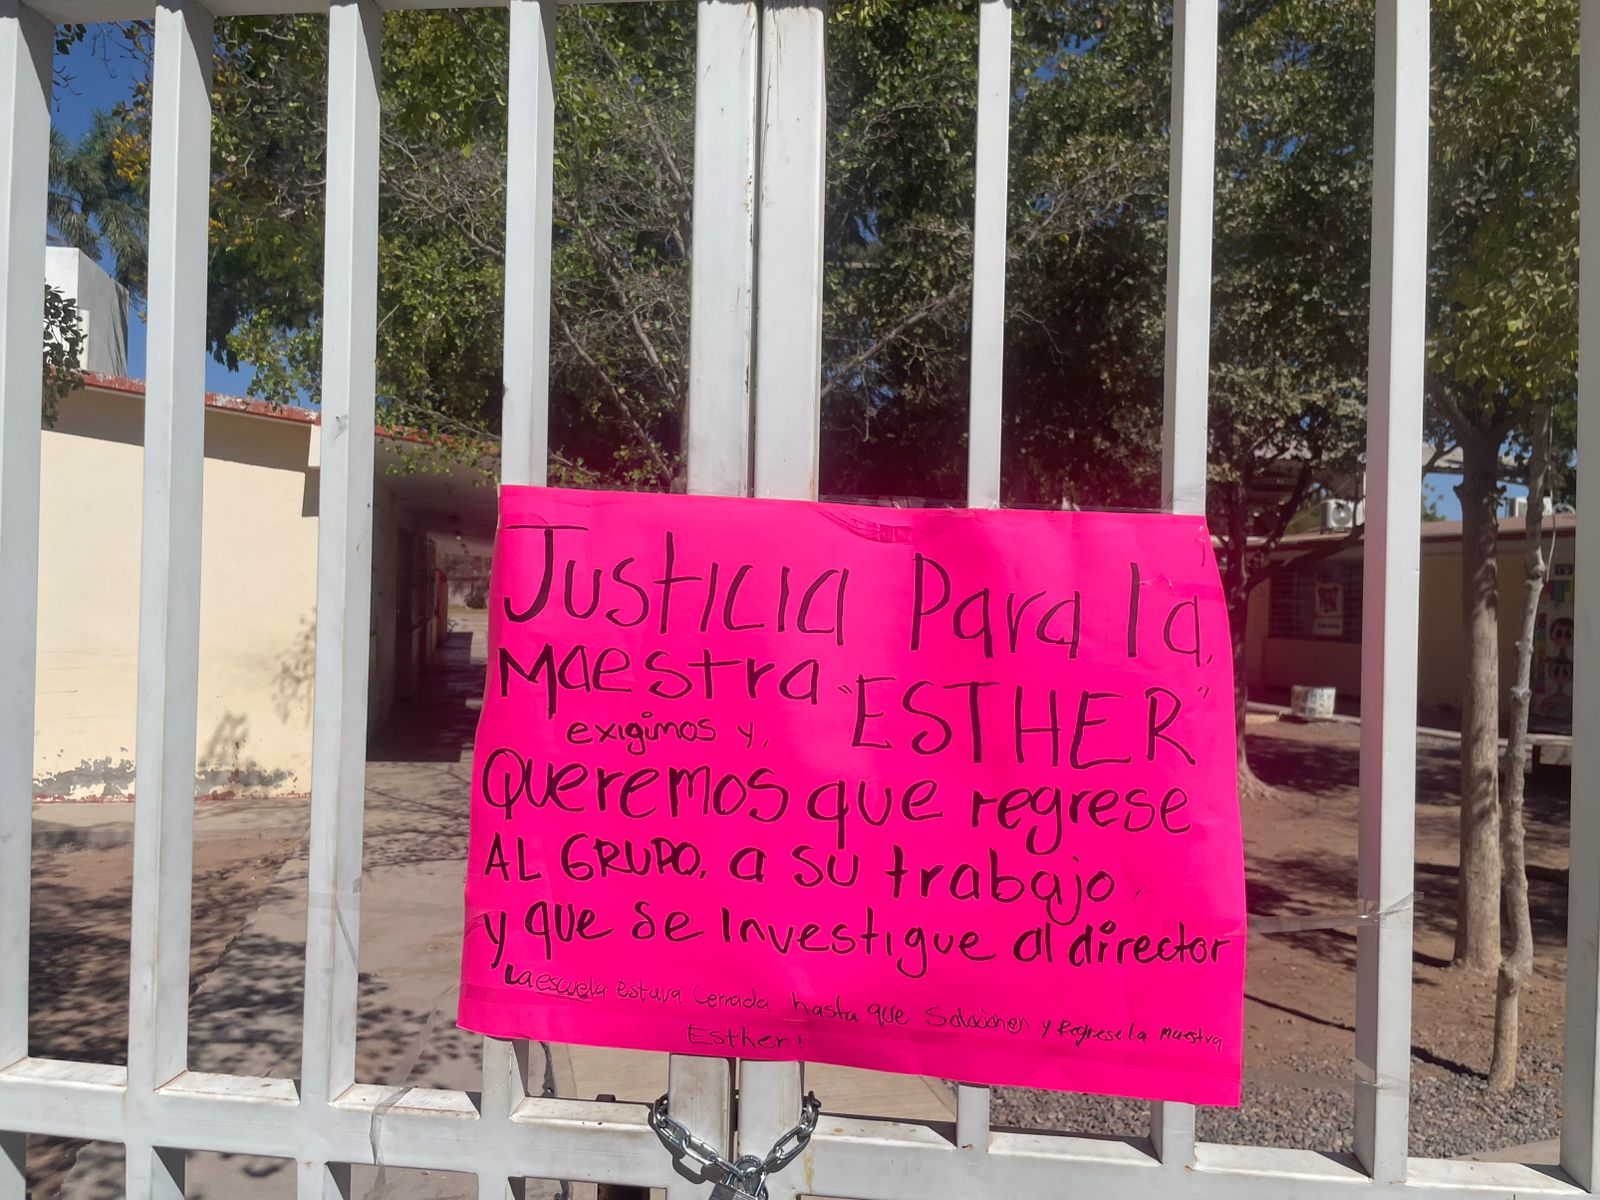 Justicia Para la
Maestra "ESTHER"
exigimos y,
Queremos que regrese
AL GRUPO. a su trabajo.
y que se investigue al director
La escuela estava Cerrada hasta que Solucionen y Regrese la maestra
Esther!